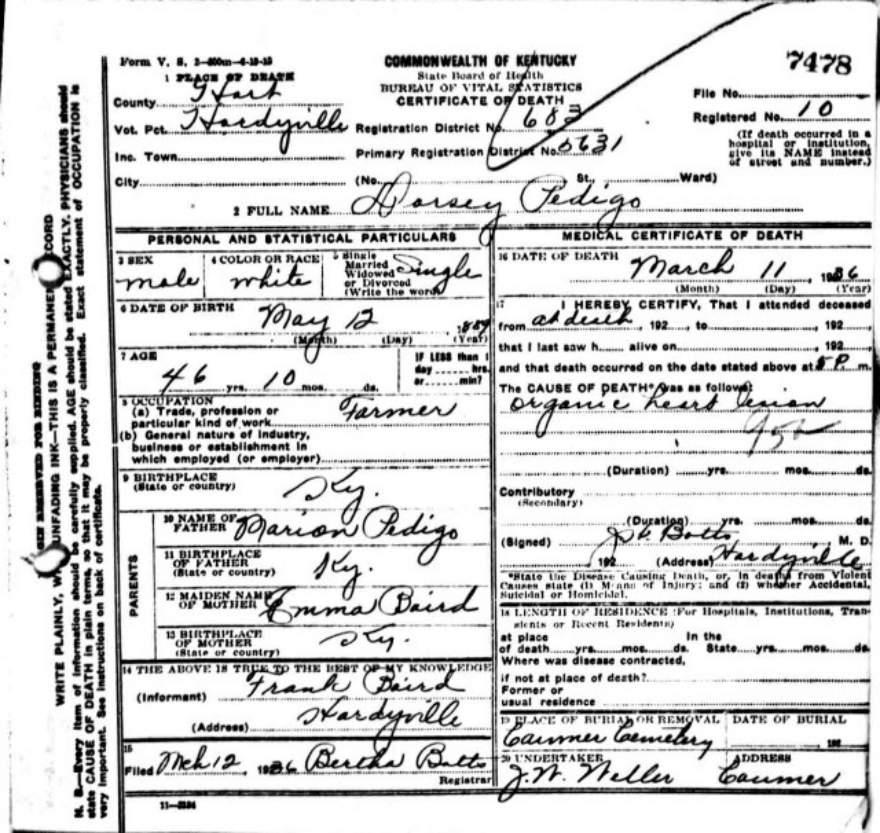 Form V. S. 2-500m-6-19-15
COMMONWEALTH OF KENTUCKY
State Board of Health
BUREAU OF VITAL STATISTICS
CERTIFICATE OF DEATH
7478
1 PLACE OF DEATH
County Hart
Vot. Pct. Hardyville
Inc. Town
City
Registration District No. 683
Primary Registration District No. 5631
(No. St., Ward)
File No.
Registered No. 10
(If death occurred in a
hospital or institution,
give its NAME instead
of street and number.)
2 FULL NAME Dorsey Pedigo
PERSONAL AND STATISTICAL PARTICULARS
3 SEX
male
4 COLOR OR RACE
white
5 Single
Married
Widowed
or Divorced
(Write the word)
Single
6 DATE OF BIRTH
May 12, 1889
(Month) (Day) (Year)
7 AGE
46 yrs. 10 mos. ds.
IF LESS than 1
day hrs.
or min?
8 OCCUPATION
(a) Trade, profession or
particular kind of work Farmer
(b) General nature of industry,
business or establishment in
which employed (or employer)
9 BIRTHPLACE
(State or country)
Ky.
PARENTS
10 NAME OF
FATHER Marion Pedigo
11 BIRTHPLACE
OF FATHER
(State or country)
Ky.
12 MAIDEN NAME
OF MOTHER Emma Baird
13 BIRTHPLACE
OF MOTHER
(State or country)
Ky.
14 THE ABOVE IS TRUE TO THE BEST OF MY KNOWLEDGE
(Informant) Frank Baird
(Address) Hardyville
15
Filed Mch 12, 1936 Bertha Botts
Registrar
11-3184
MEDICAL CERTIFICATE OF DEATH
16 DATE OF DEATH
March 11, 1936
(Month) (Day) (Year)
17 I HEREBY CERTIFY, That I attended deceased
from at death, 192, to, 192,
that I last saw h alive on, 192,
and that death occurred on the date stated above at 5 P. m.
The CAUSE OF DEATH* was as follows:
organic heart lesion
(Duration) yrs. mos. ds.
Contributory
(Secondary)
(Duration) yrs. mos. ds.
(Signed) Botts M. D.
, 192 (Address) Hardyville
*State the Disease Causing Death, or, in deaths from Violent
Causes state (1) Means of Injury; and (2) whether Accidental,
Suicidal or Homicidal.
18 LENGTH OF RESIDENCE (For Hospitals, Institutions, Tran-
sients or Recent Residents)
at place In the
of death yrs. mos. ds. State yrs. mos. ds.
Where was disease contracted,
if not at place of death?
Former or
usual residence
19 PLACE OF BURIAL OR REMOVAL
Canmer Cemetery
DATE OF BURIAL
, 192
20 UNDERTAKER
J. W. Weller
ADDRESS
Canmer
RESERVED FOR BINDING
WRITE PLAINLY, UNFADING INK—THIS IS A PERMANENT RECORD
N. B.—Every item of information should be carefully supplied. AGE should be stated EXACTLY. PHYSICIANS should
state CAUSE OF DEATH in plain terms, so that it may be properly classified. Exact statement of OCCUPATION is
very important. See instructions on back of certificate.